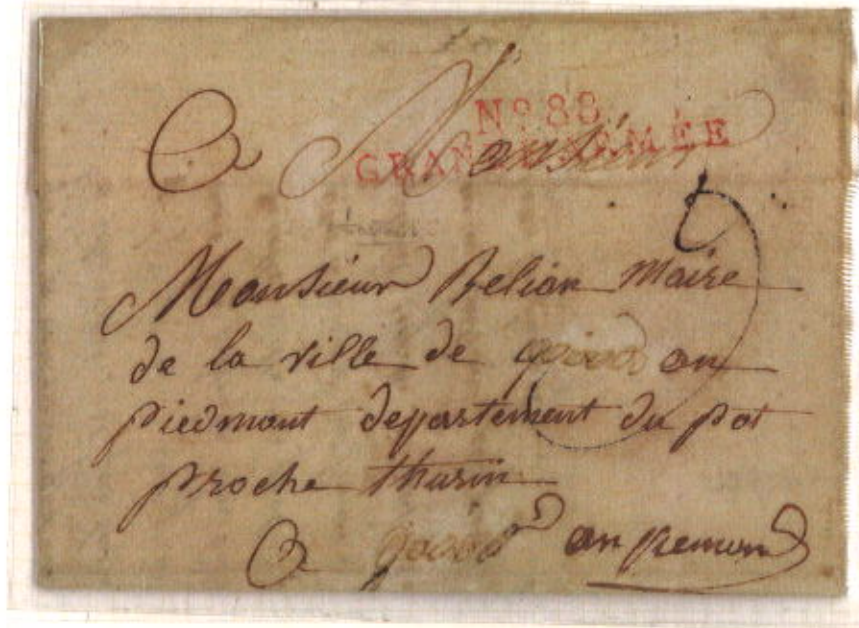 No 88
GRANDE ARMÉE
A Monsieur
Monsieur Belion Maire
de la ville de en
piedmont departement du pot
proche thurin
A en piemond